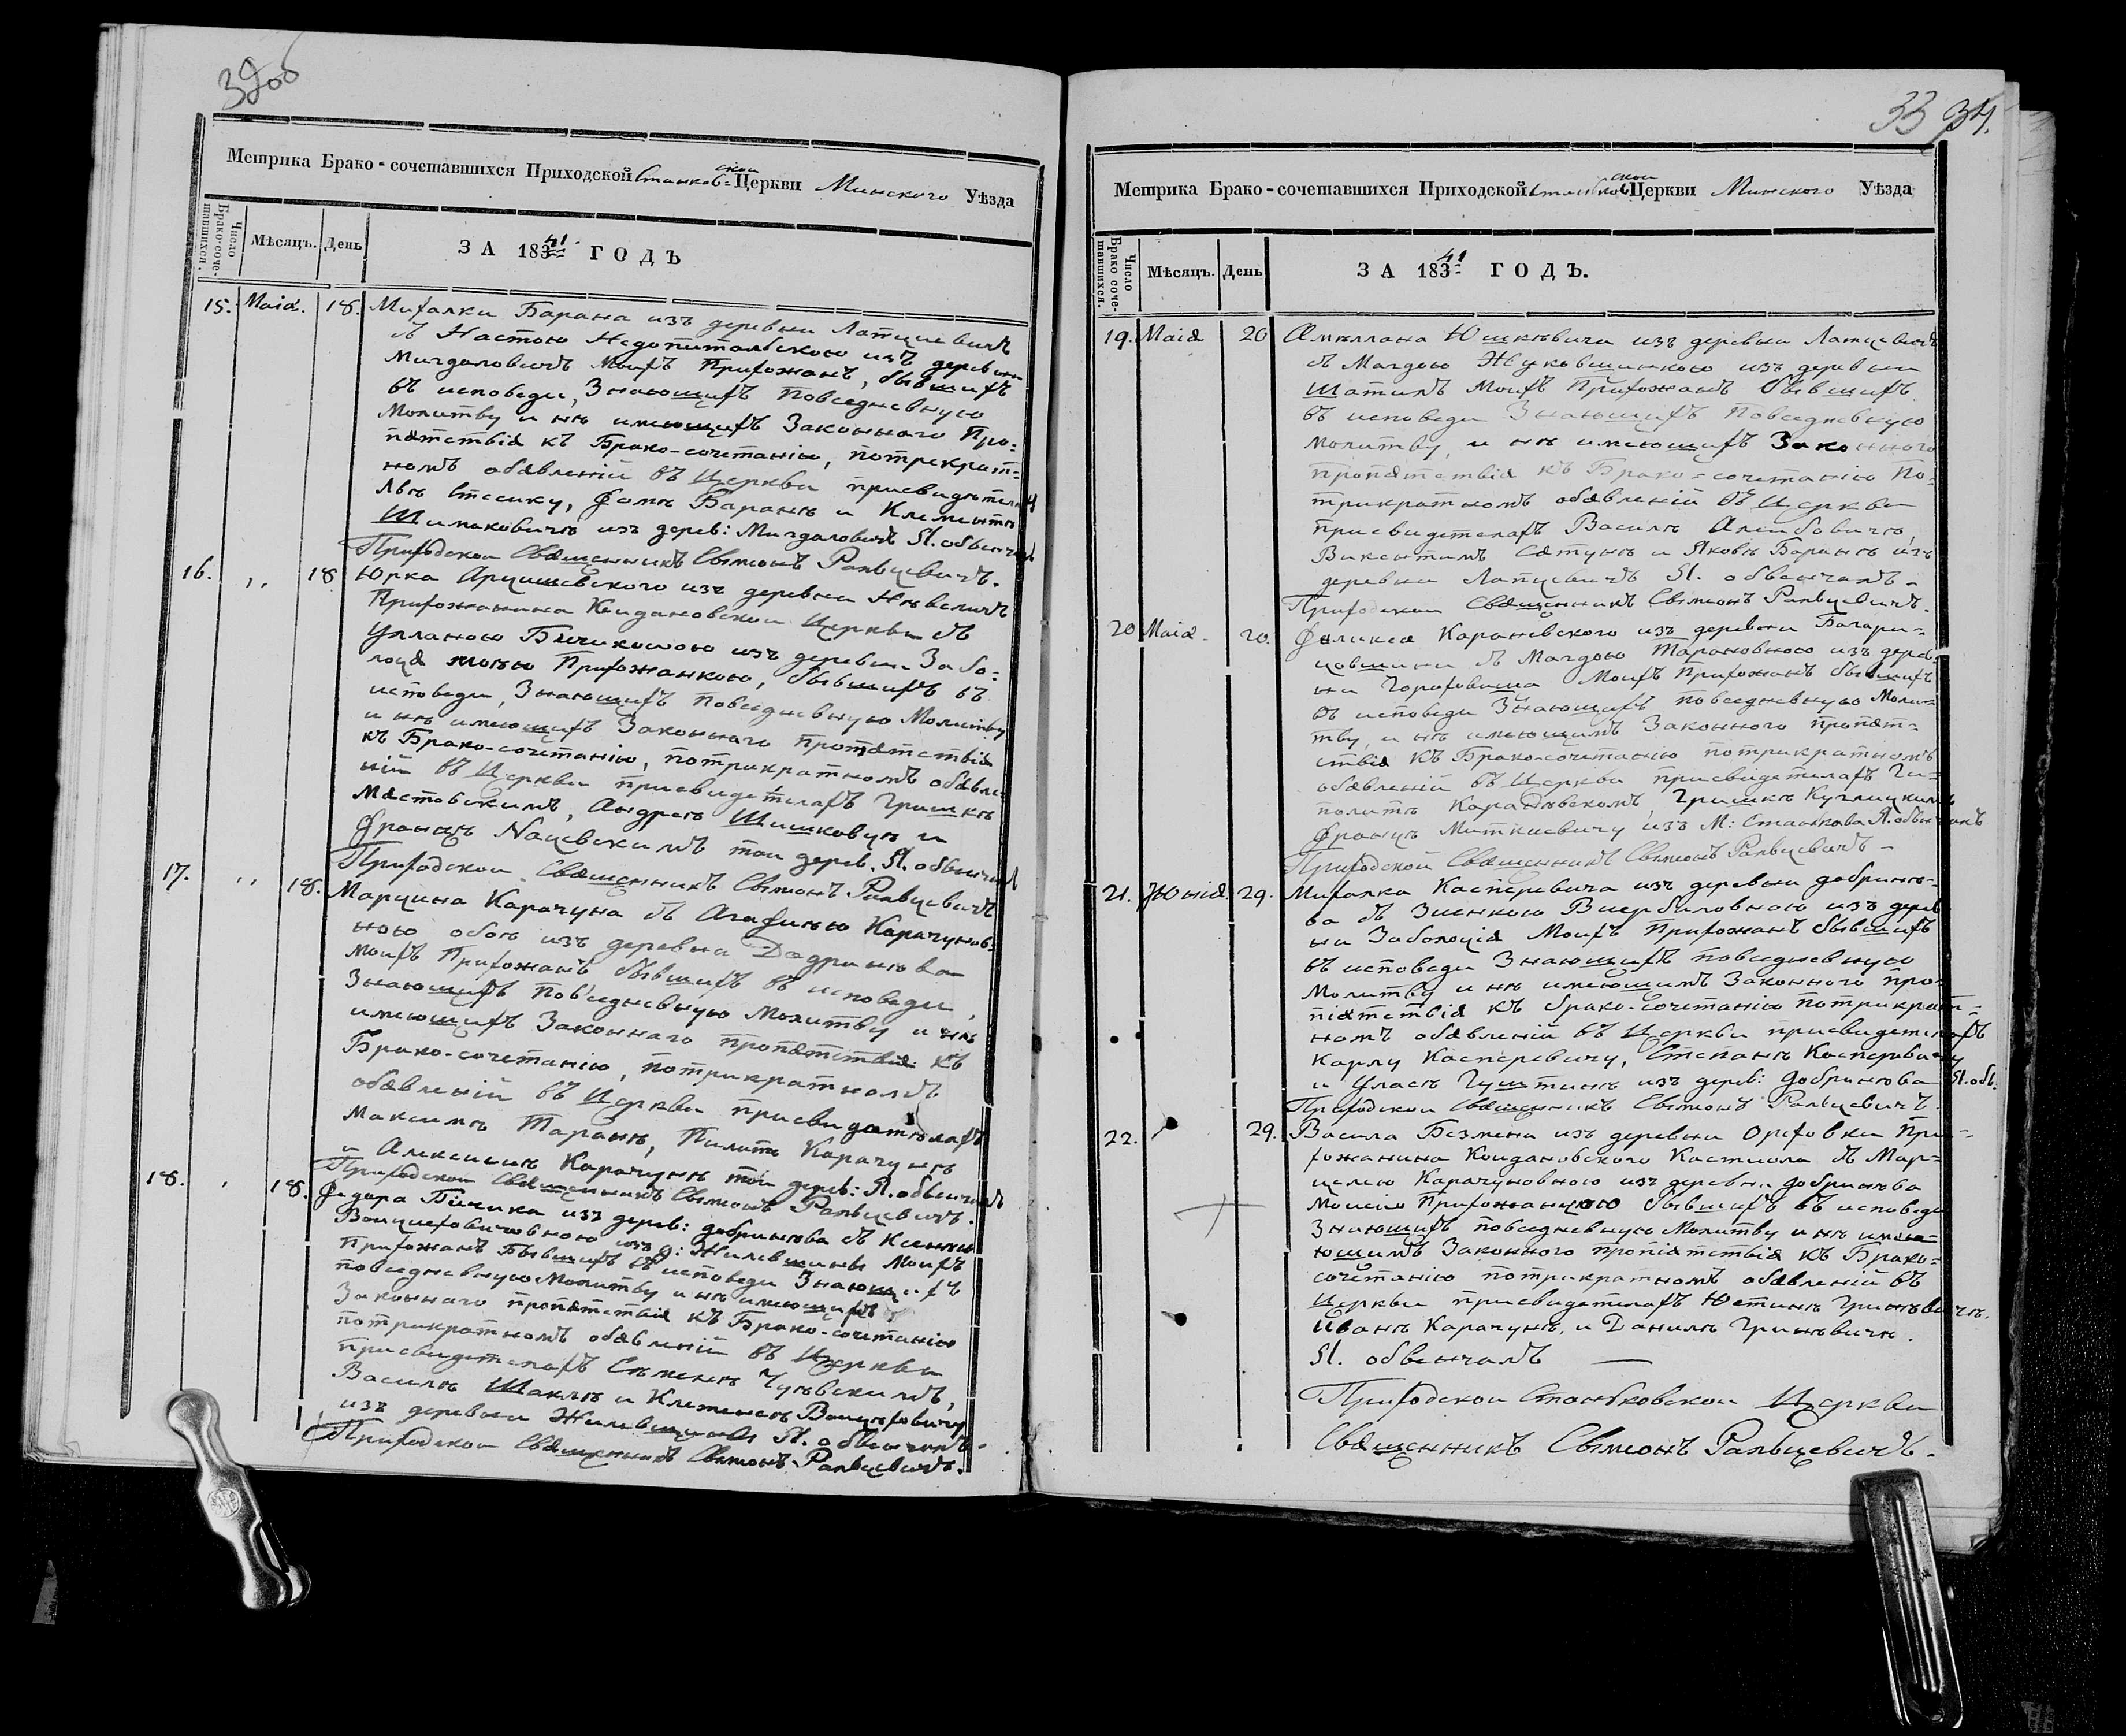 32об
Метрика Брако-сочетавшихся Приходской Станьковской Церкви Минского Уѣзда
Число Брако-соче-тавшихся.
Мѣсяцъ.
День
ЗА 1841 ГОДЪ
15. Маіа. 18. Михалки Барана изъ деревни Лапцевичъ
съ Настою Недопитальскою изъ деревни
Мигдаловичъ Моихъ Прихожанъ, бывшихъ
въ исповеди, Знающихъ Повседневную
Молитву и не имеющихъ Законнаго Про-
пятствія къ Брако-сочетанію, потрекрат-
номъ обявленій въ Церкви присвидетеля
Стесику, Фоме Баране и Клементе
Шимаковиче изъ дерев: Мигдаловичъ Я. обвенчалъ
Приходской Священникъ Сѵмеонъ Ральцевичъ.
16. ,, 18 Юрка Арцишевского изъ деревни Невеличъ
Прихожанина Койдановской Церкви съ
Улланою Бычиковою изъ деревни Забо-
лоця моею Прихожанкою, бывшихъ въ
исповеди, Знающихъ Повседневную Молитву
и не имеющихъ Законнаго пропятствія
къ Брако-сочетанію, потрикратномъ обявле-
ній въ Церкви присвидетелахъ Гришке
Мастовскимъ, Андрею Шишковую и
Франце Нацевскимъ той дерев. Я. обвенчалъ
Приходской Священникъ Сѵмеонъ Ральцевичъ
17. ,, 18. Марцина Карачуна съ Агафиею Карачунов-
ною обое изъ деревни Добринева
моихъ Прихожанъ бывшихъ въ исповеди,
Знающихъ Повседневную Молитву и не
имеющихъ Законнаго пропятствія къ
Брако-сочетанію, потрикратномъ
обявленій въ Церкви присвидетелахъ
Максиме Таране, Пилипе Карачуне
и Алексише Карачуне той дерев: Я. обвенчалъ
Приходской Священникъ Сѵмеонъ Ральцевичъ.
18. , 18. Федора Бычика изъ дерев: Добринева съ Ксенею
Войцеховичовною изъ д: Жилевщины Моихъ
Прихожанъ Бывшихъ въ исповеди Знающихъ
повседневную Молитву и не имеющихъ
Законнаго пропятствія къ Брако-сочетанію
потрикратномъ обявленій въ Церкви
присвидетелахъ Семене Чуевскимъ,
Василе Шакле и Клеменсе Войцеховичу
изъ деревни Жилевщины Я. обвенчалъ
Приходской Священникъ Сѵмеонъ Ральцевичъ.
33 34.
Метрика Брако-сочетавшихся Приходской Станьковской Церкви Минского Уѣзда
Число Брако соче-тавшихся.
Мѣсяцъ.
День
ЗА 1841 ГОДЪ.
19. Маіа 20 Амеллана Юшкевича изъ деревни Лапцевичъ
съ Магдою Жуковщинкою изъ деревни
Шатилъ Моихъ Прихожанъ бывшихъ
въ исповеди Знающихъ Повседневную
молитву, и не имеющихъ Законного
пропятствія къ Брако-сочетанію По-
трикратномъ обявленій въ Церкви
присвидетелахъ Василе Алейбовичю,
Викентимъ Сатуне и Якове Баране изъ
деревни Лапцевичъ Я. обвенчалъ-
Приходской Священникъ Сѵмеонъ Ральцевичъ.
20 Маіа. 20. Феликса Караневского изъ деревни Багари-
цовщини съ Магдою Тарановною изъ дерев-
ни Гороховища Моихъ Прихожанъ бывшихъ
въ исповеди Знающихъ повседневную Моли-
тву, и не имеющимъ Законного пропят-
ствія къ Брако-сочетанію потрикратномъ
обявленій въ Церкви присвидетелахъ Ги-
полите Караневскомъ, Гришке Куглицкимъ
Франце Миткиевичу изъ М: Станкова Я. обвенчалъ
Приходской Священникъ Сѵмеонъ Ральцевичъ-
21. Юнія 29. Михалка Касперевича изъ деревни Добрине-
ва съ Зиенкою Виербиловною изъ дерев
ни Заболоція Моихъ Прихожанъ бывшихъ
въ исповеди Знающихъ повседневную
Молитву и не имеющимъ Законного про-
піятствія къ брако-сочетанію потрикрат-
номъ обявленій въ Церкви присвидетелахъ
Карлу Касперевичу, Степане Касперевичу
и Уласе Гуштине изъ дерев: Добринева Я. обв.
Приходской Священникъ Сѵмеонъ Ральцевичъ.
22. 29. Васила Безмена изъ деревни Ореховки При-
хожанина Койдановского Костиола съ Мар-
целею Карачуновною изъ деревни Добринева
Моиею Прихожанкою бывшихъ въ исповеди
Знающихъ повседневную Молитву и не име-
ющимъ Законного пропіятствія къ Брако-
сочетанію потрикратномъ обявленій въ
Церкви присвидетелахъ Юстине Гриневиче,
Иване Карачуне, и Даниле Гриневиче.
Я. обвенчалъ —
Приходской Станьковской Церкви
Священникъ Сѵмеонъ Ральцевичъ.